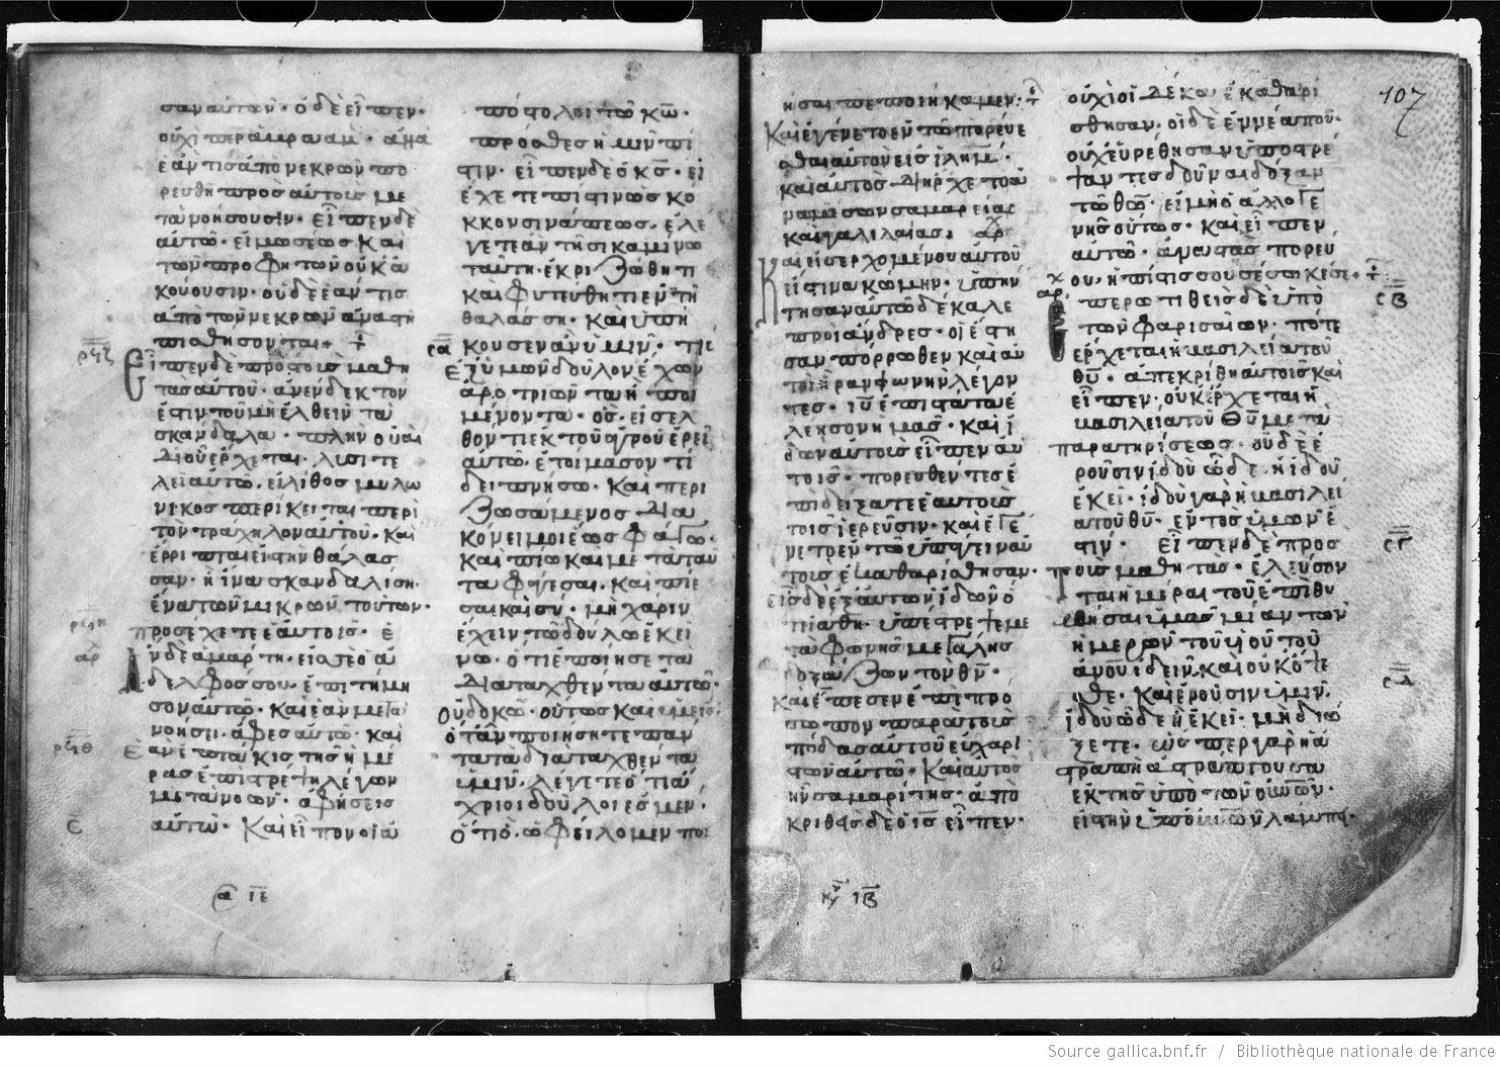 σαν αὐτῶν· ὁ δὲ εἶπεν·
οὐχὶ περ ἀβρααμ· ἀλλα
ἐάν τισ ἀπο νεκρῶν πο
ρευθῆ προσ αὐτοὺσ με
τανοήσουσιν· εἶπεν δὲ
αὐτῶ· εἰ μωσεωσ καὶ
τῶν προφητῶν οὐκ ἀ
κούουσιν· οὐδὲ ἐάν τισ
ἀπο τῶν νεκρῶν ἀναστῆ
πισθήσονται·
Εἶπεν δὲ πρὸσ τοὺσ μαθη
τασ αὐτοῦ· ἀνένδεκτον
ἐστιν τοῦ μὴ ἐλθεῖν τὰ
σκάνδαλα· πλὴν οὐαὶ
δι οὗ ἔρχεται· λυσιτε
λεῖ αὐτῶ· εἰ λίθοσ μυλω
νικοσ περικειται περὶ
τὸν τράχηλον αὐτοῦ· καὶ
ἔρριπται εἰσ τὴν θάλασ
σαν· ἢ ἵνα σκανδαλίση·
ἕνα τῶν μικρῶν τούτων·
προσέχετε ἑαυτοῖσ· ἐ
ὰν δὲ ἁμάρτη· εἰσ σε ὁ ἀ
δελφοσ σου· ἐπιτήμη
σον αὐτῶ· καὶ ἐὰν μετα
νοήση· ἄφεσ αὐτῶ· καὶ
ἐὰν ἑπτάκισ τῆσ ἡμέ
ρασ ἐπιστρέψη λέγων
μετανοῶν· ἀφήσεισ
αὐτῶ· Καὶ εἶπον οἱ ἀ
ποστολοι τῶ κω·
πρόσθεσ ἡμῖν πί
στιν· εἶπεν δὲ ὁ κσ· εἰ
ἔχετε πίστιν ὡσ κό
κκον σινάπεωσ· ἐλέ
γετε ἂν τῆ συκαμίνω
ταύτη· ἐκριζώθητι
καὶ φυτεύθητι ἐν τῆ
θαλάσση· καὶ ὑπή
κουσεν ἂν ὑμῖν· τίσ
ἐξ ὑμῶν δοῦλον ἔχων
ἀροτριῶντα ἢ ποι
μένοντα· ὃσ εἰσελ
θόντι ἐκ τοῦ ἀγροῦ ἐρεῖ
αὐτῶ· ἑτοίμασον τί
δειπνήσω· Καὶ περι
ζωσάμενοσ δια
κόνει μοι ἕωσ φάγω·
καὶ πίω καὶ με τὰ ταῦ
τα φάγεσαι· καὶ πίε
σαι καὶ συ· μὴ χάριν
ἔχειν τῶ δούλω ἐκεί
νω· ὅτι ἐποίησε τὰ
διαταχθέντα αὐτῶ·
Οὐ δοκῶ· οὕτωσ καὶ ὑμεῖσ·
ὅταν ποιήσητε παν
τα τὰ διαταχθέντα
ὑμῖν· λέγετε ὅτι ἀ
χριοι δοῦλοι ἐσμεν·
Ὅτι ὃ ὠφείλομεν ποι
ῆσαι πεποιήκαμεν·
Καὶ ἐγένετο ἐν τῶ πορεύε
σθαι αὐτὸν εἰσ ἰλημ·
καὶ αὐτὸσ διήρχετο διὰ
μέσων σαμαρείασ
καὶ γαλιλαίασ·
Καὶ εἰσερχομένου αὐτοῦ
εἰσ τινα κώμην· ὑπήν
τησαν αὐτῶ δέκα λε
προὶ ἄνδρεσ· οἳ ἔστη
σαν πόρρωθεν καὶ αὐ
τοὶ ἦραν φωνὴν λέγον
τεσ· ιυ ἐπιστατα ἐ
λέησον ἡμασ· καὶ ἰ
δων αὐτοὺσ εἶπεν αὐ
τοῖσ· πορευθέντεσ ἐ
πιδείξατε ἑαυτοὺσ
τοῖσ ἱερεῦσιν· καὶ ἐγέ
νετο ἐν τῶ ὑπάγειν αὐ
τοὺσ ἐκαθαρίσθησαν·
εἷσ δὲ ἐξ αὐτῶν ἰδὼν ὅ
τι ἰάθη· ὑπέστρεψε με
τὰ φωνῆσ μεγάλησ
δοξάζων τὸν θν·
Καὶ ἔπεσεν ἐπὶ προ
σωπον παρα τοὺσ
πόδασ αὐτοῦ εὐχαρι
στῶν αὐτῶ· Καὶ αὐτὸσ
ἦν σαμαρίτησ· ἀπο
κριθεὶσ δὲ ὁ ισ εἶπεν·
οὐχὶ οἱ δέκα ἐκαθαρί
σθησαν· οἱ δὲ ἐννέα ποῦ·
οὐχ εὑρέθησαν ὑποστρέ
ψαντεσ δοῦναι δόξαν
τῶ θω· εἰ μὴ ὁ ἀλλογε
νὴσ οὗτωσ· καὶ εἶπεν
αὐτῶ· ἀναστὰσ πορεύ
ου· ἡ πίστισ σου σέσωκε σε·
Ἐπερωτιθεὶσ δὲ ὑπὸ
τῶν φαρισαίων· πότε
ἔρχεται ἡ βασιλεία τοῦ
θυ· ἀπεκρίθη αὐτοῖσ καὶ
εἶπεν· οὐκ ἔρχεται ἡ
βασιλεία τοῦ Θυ με τὰ
παρατηρίσεωσ· οὐδὲ ἐ
ροῦσιν ἰδοὺ ὧδε· ἢ ἰδοὺ
ἐκεῖ· ἰδοὺ γὰρ ἡ βασιλεί
α τοῦ θυ· ἐντὸσ ὑμῶν ἐ
στιν· εἶπεν δὲ πρὸσ
τοὺσ μαθητάσ· ἐλεύσον
ται ἡμέραι τοῦ ἐπιθυ
μῆσαι ὑμᾶσ μίαν τῶν
ἡμερῶν τοῦ υἱοῦ τοῦ
ἀνου ἰδεῖν καὶ οὐκ ὄψε
σθε· Καὶ ἐροῦσιν ὑμῖν·
ἰδοὺ ὧδε ἢ ἐκεῖ· μὴ διώ
ξετε· ὥσπερ γὰρ ἡ ἀ
στραπὴ ἀστράπτουσα
ἐκ τῆσ ὑπὸ τὸν οὐνον·
107